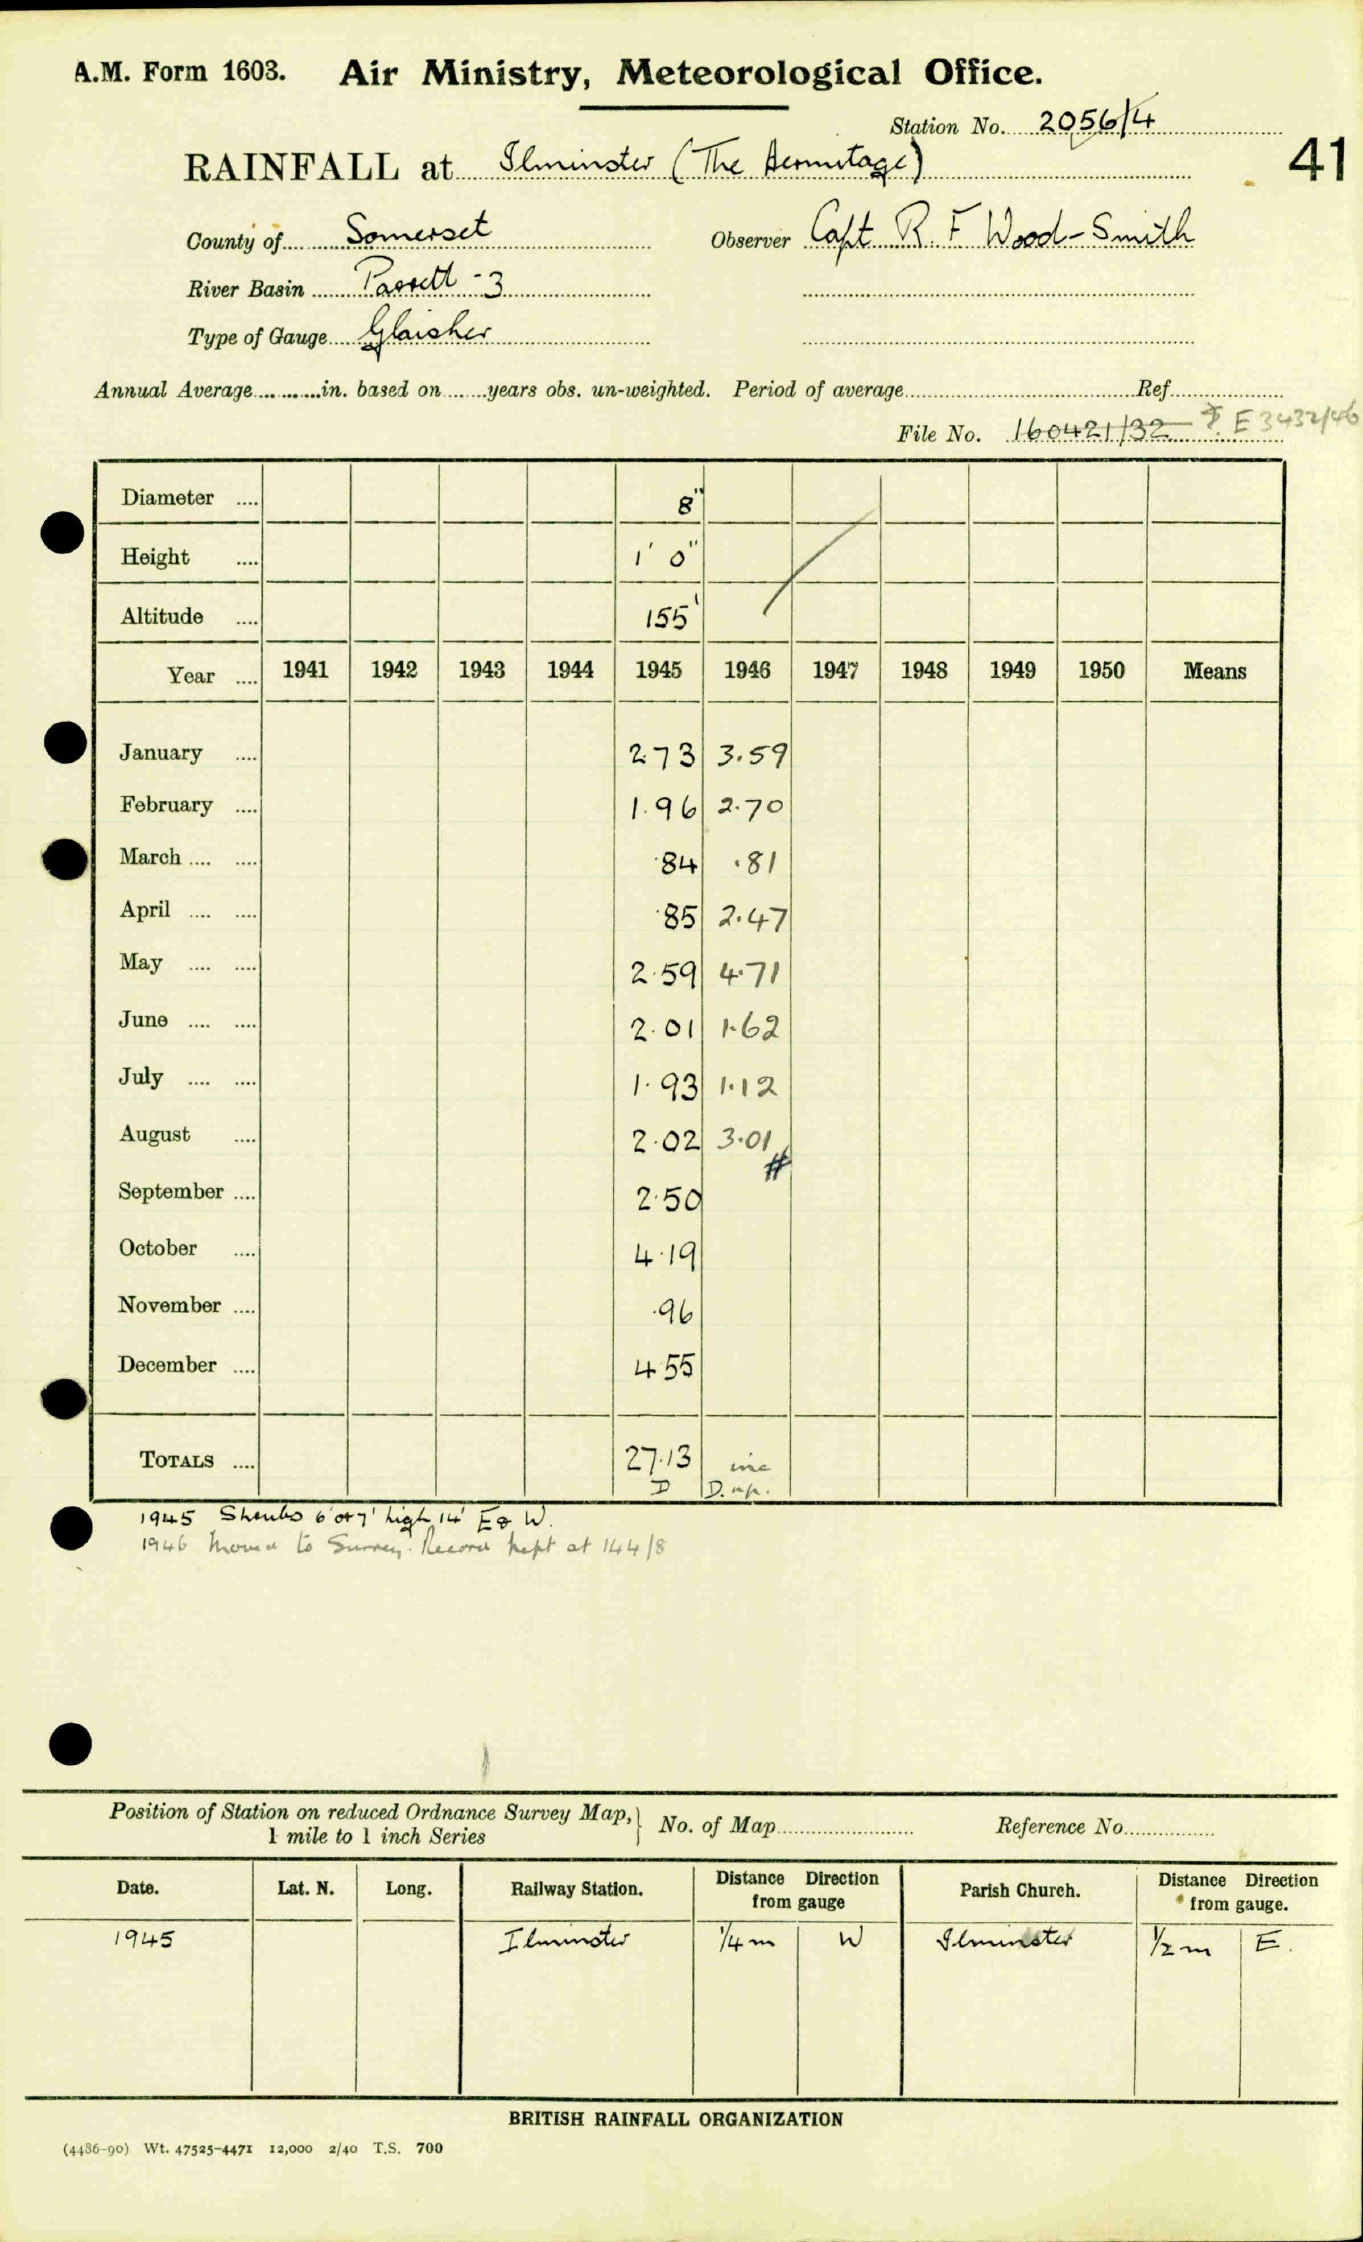 A.M. Form 1603. Air Ministry, Meteorological Office.
Station No. 2056/4
41
RAINFALL at Ilminster (The Hermitage)
County of Somerset Observer Capt R. F Wood-Smith
River Basin Parrett - 3
Type of Gauge Glaisher
Annual Average............in. based on.......years obs. un-weighted. Period of average........Ref........
File No. 160421/32 E 3432/46
Diameter .... 8"
Height .... 1' 0"
Altitude .... 155'
Year .... 1941 1942 1943 1944 1945 1946 1947 1948 1949 1950 Means
January .... 2.73 3.59
February .... 1.96 2.70
March .... .... .84 .81
April .... .... .85 2.47
May .... .... 2.59 4.71
June .... .... 2.01 1.62
July .... .... 1.93 1.12
August .... 2.02 3.01
#
September .... 2.50
October .... 4.19
November .... .96
December .... 4.55
TOTALS .... 27.13 inc
D D. up.
1945 Shrubs 6' or 7' high 14' E & W.
1946 Moved to Surrey. Record kept at 144/8
Position of Station on reduced Ordnance Survey Map, 1 mile to 1 inch Series } No. of Map........ Reference No........
Date. Lat. N. Long. Railway Station. Distance Direction from gauge Parish Church. Distance Direction from gauge.
1945 Ilminster 1/4 m W Ilminster 1/2 m E.
BRITISH RAINFALL ORGANIZATION
(4486-90) Wt. 47525-4471 12,000 2/40 T.S. 700